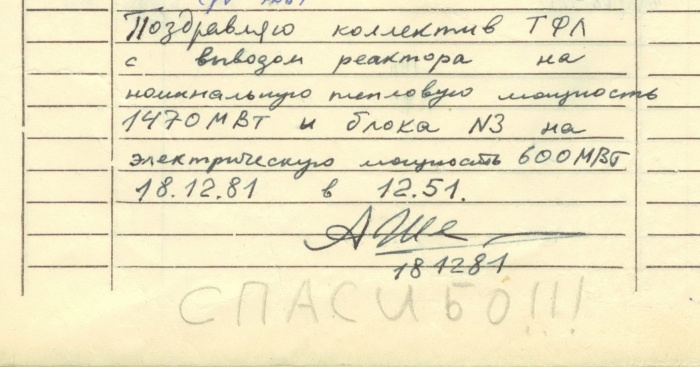 Поздравляю коллектив ТФЛ
с выводом реактора на
номинальную тепловую мощность
1470 МВт и блока N3 на
электрическую мощность 600 МВт
18.12.81 в 12.51.
181281
СПАСИБО!!!